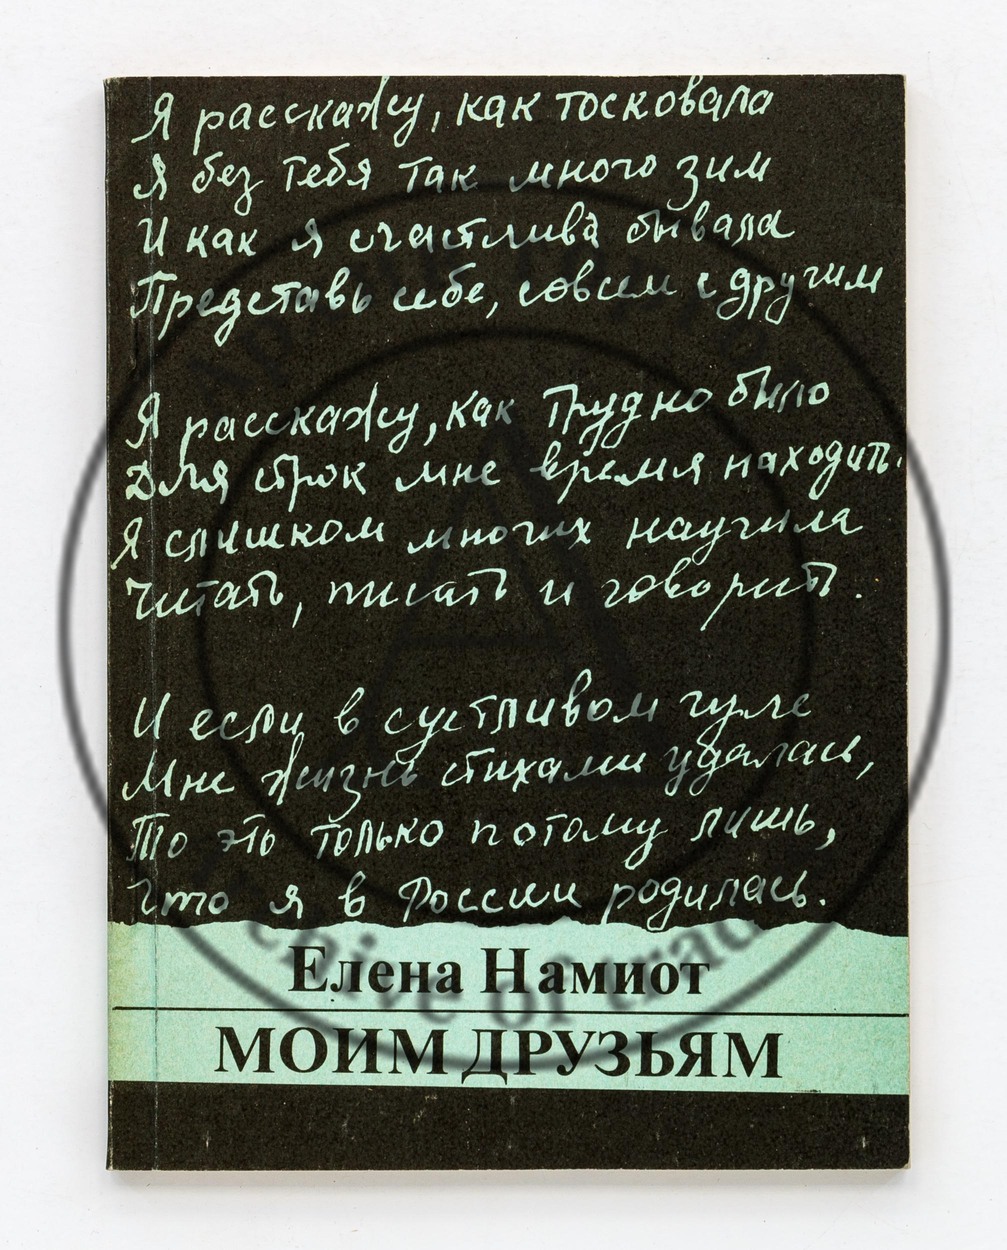 Я расскажу, как тосковала
Я без тебя так много зим
И как я счастлива бывала
Представь себе, совсем с другим
Я расскажу, как трудно было
Для строк мне время находить.
Я слишком многих научила
Читать, писать и говорить.
И если в суетливом гуле
Мне жизнь стихами удалась,
То это только потому лишь,
Что я в России родилась.
Елена Намиот
МОИМ ДРУЗЬЯМ